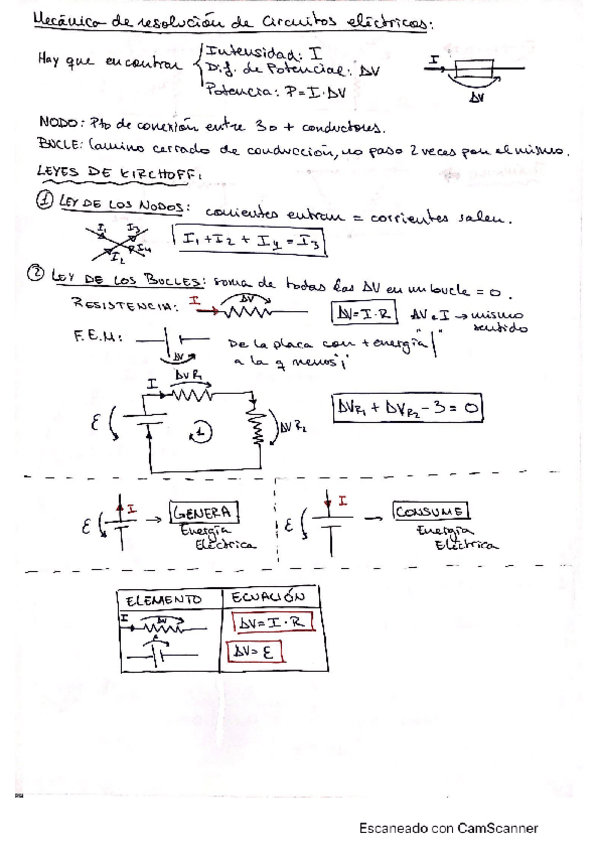 Mecánica de resolución de circuitos eléctricos:
Hay que encontrar
Intensidad: I
D.f. de Potencial: ΔV
Potencia: P=I·ΔV
I
ΔV
NODO: Pto de conexión entre 3 o + conductores.
BUCLE: Camino cerrado de conducción, no paso 2 veces por el mismo.
LEYES DE KIRCHOFF:
① LEY DE LOS NODOS: corrientes entran = corrientes salen.
I1 I3
I2 I4
I1 + I2 + I4 = I3
② LEY DE LOS BUCLES: soma de todas las ΔV en un bucle = 0.
RESISTENCIA: I ΔV
ΔV = I·R ΔV e I → mismo sentido
F.E.M: ΔV
De la placa con + energía "|"
a la q menos "ı"
I ΔV R1
ε 1 ΔV R2
ΔVR1 + ΔVR2 - 3 = 0
ε I → GENERA
Energía
Eléctrica
ε I → CONSUME
Energía
Eléctrica
ELEMENTO ECUACIÓN
I ΔV ΔV = I·R
ΔV = ε
Escaneado con CamScanner